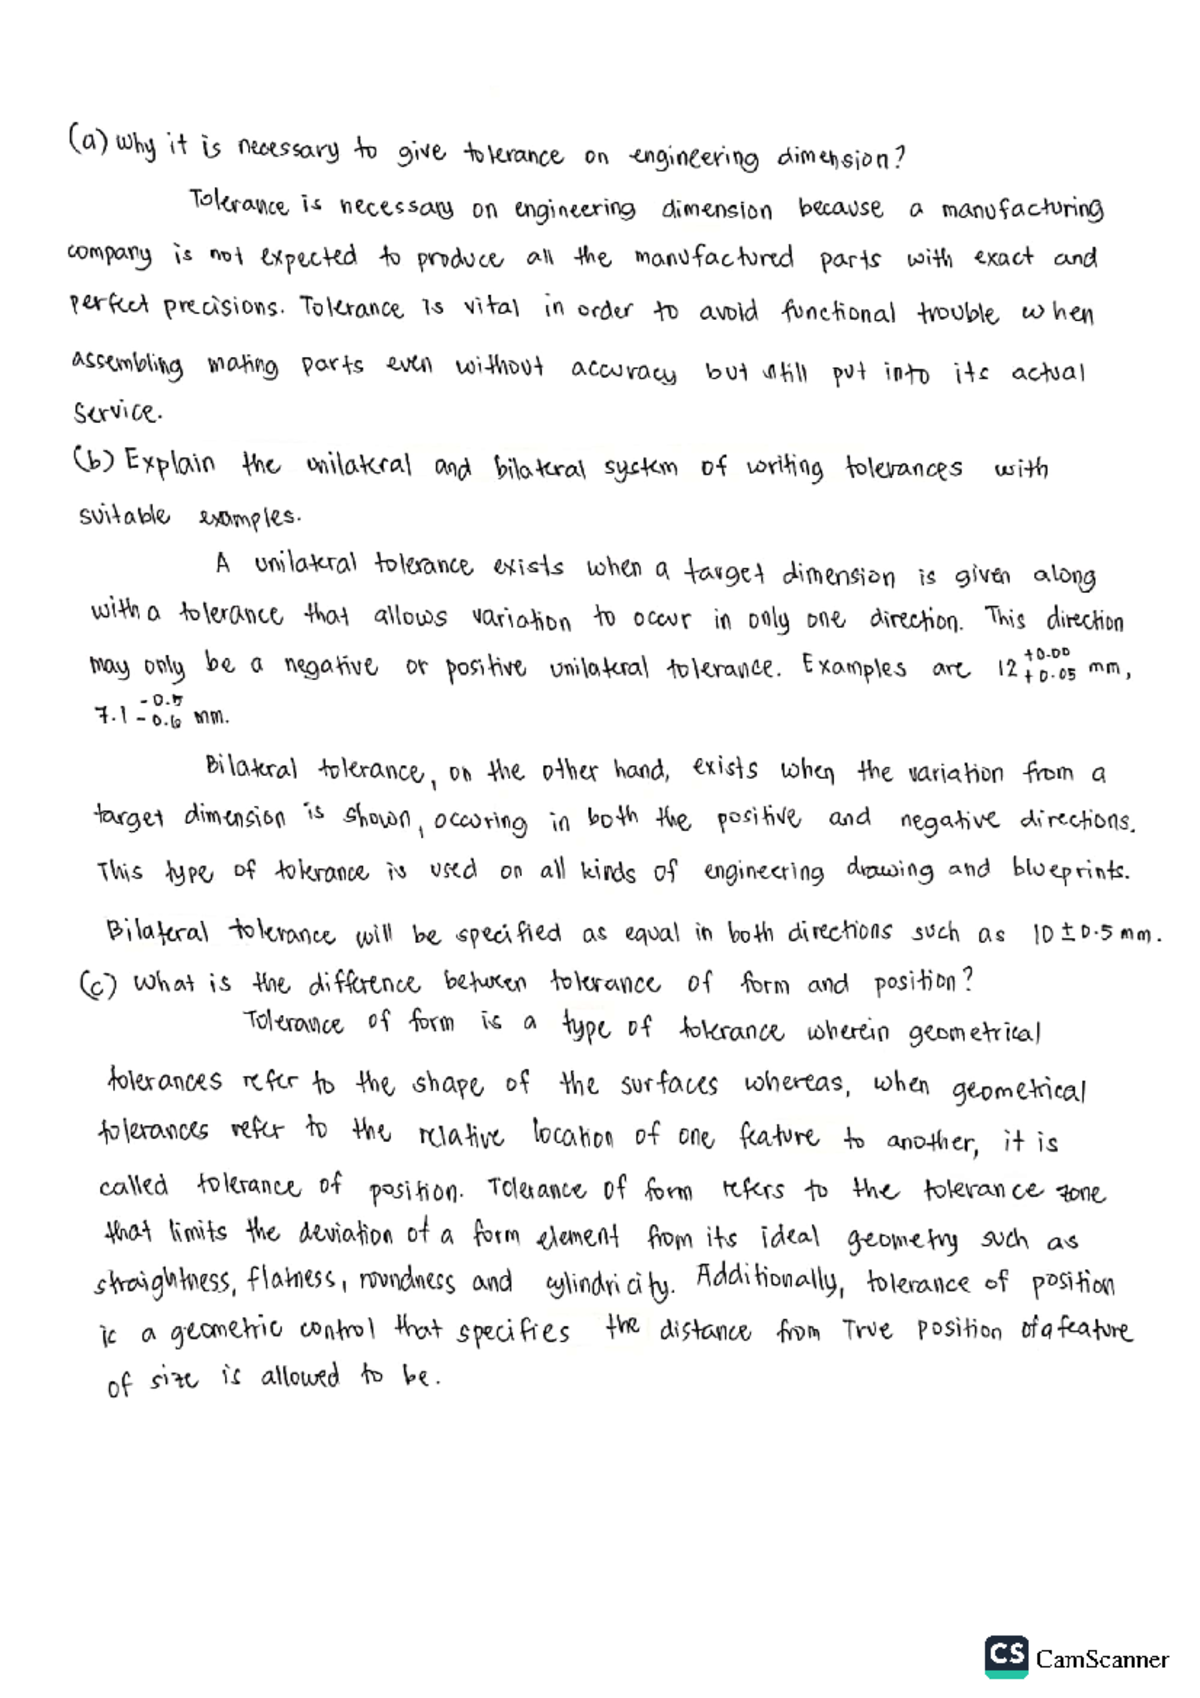 (a) Why it is necessary to give tolerance on engineering dimension?
Tolerance is necessary on engineering dimension because a manufacturing
company is not expected to produce all the manufactured parts with exact and
perfect precisions. Tolerance is vital in order to avoid functional trouble when
assembling mating parts even without accuracy but still put into its actual
service.
(b) Explain the unilateral and bilateral system of writing tolerances with
suitable examples.
A unilateral tolerance exists when a target dimension is given along
with a tolerance that allows variation to occur in only one direction. This direction
may only be a negative or positive unilateral tolerance. Examples are 12 +0.00 +0.05 mm,
7.1 -0.5 -0.6 mm.
Bilateral tolerance, on the other hand, exists when the variation from a
target dimension is shown, occuring in both the positive and negative directions.
This type of tolerance is used on all kinds of engineering drawing and blueprints.
Bilateral tolerance will be specified as equal in both directions such as 10 ± 0.5 mm.
(c) What is the difference between tolerance of form and position?
Tolerance of form is a type of tolerance wherein geometrical
tolerances refer to the shape of the surfaces whereas, when geometrical
tolerances refer to the relative location of one feature to another, it is
called tolerance of position. Tolerance of form refers to the tolerance zone
that limits the deviation of a form element from its ideal geometry such as
straightness, flatness, roundness and cylindricity. Additionally, tolerance of position
is a geometric control that specifies the distance from True position of a feature
of size is allowed to be.
CS CamScanner